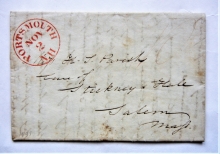 PORTSMOUTH
NOV
2
N.H
H. S. Parish
Care of
Stickney & Hale
Salem
Mass.